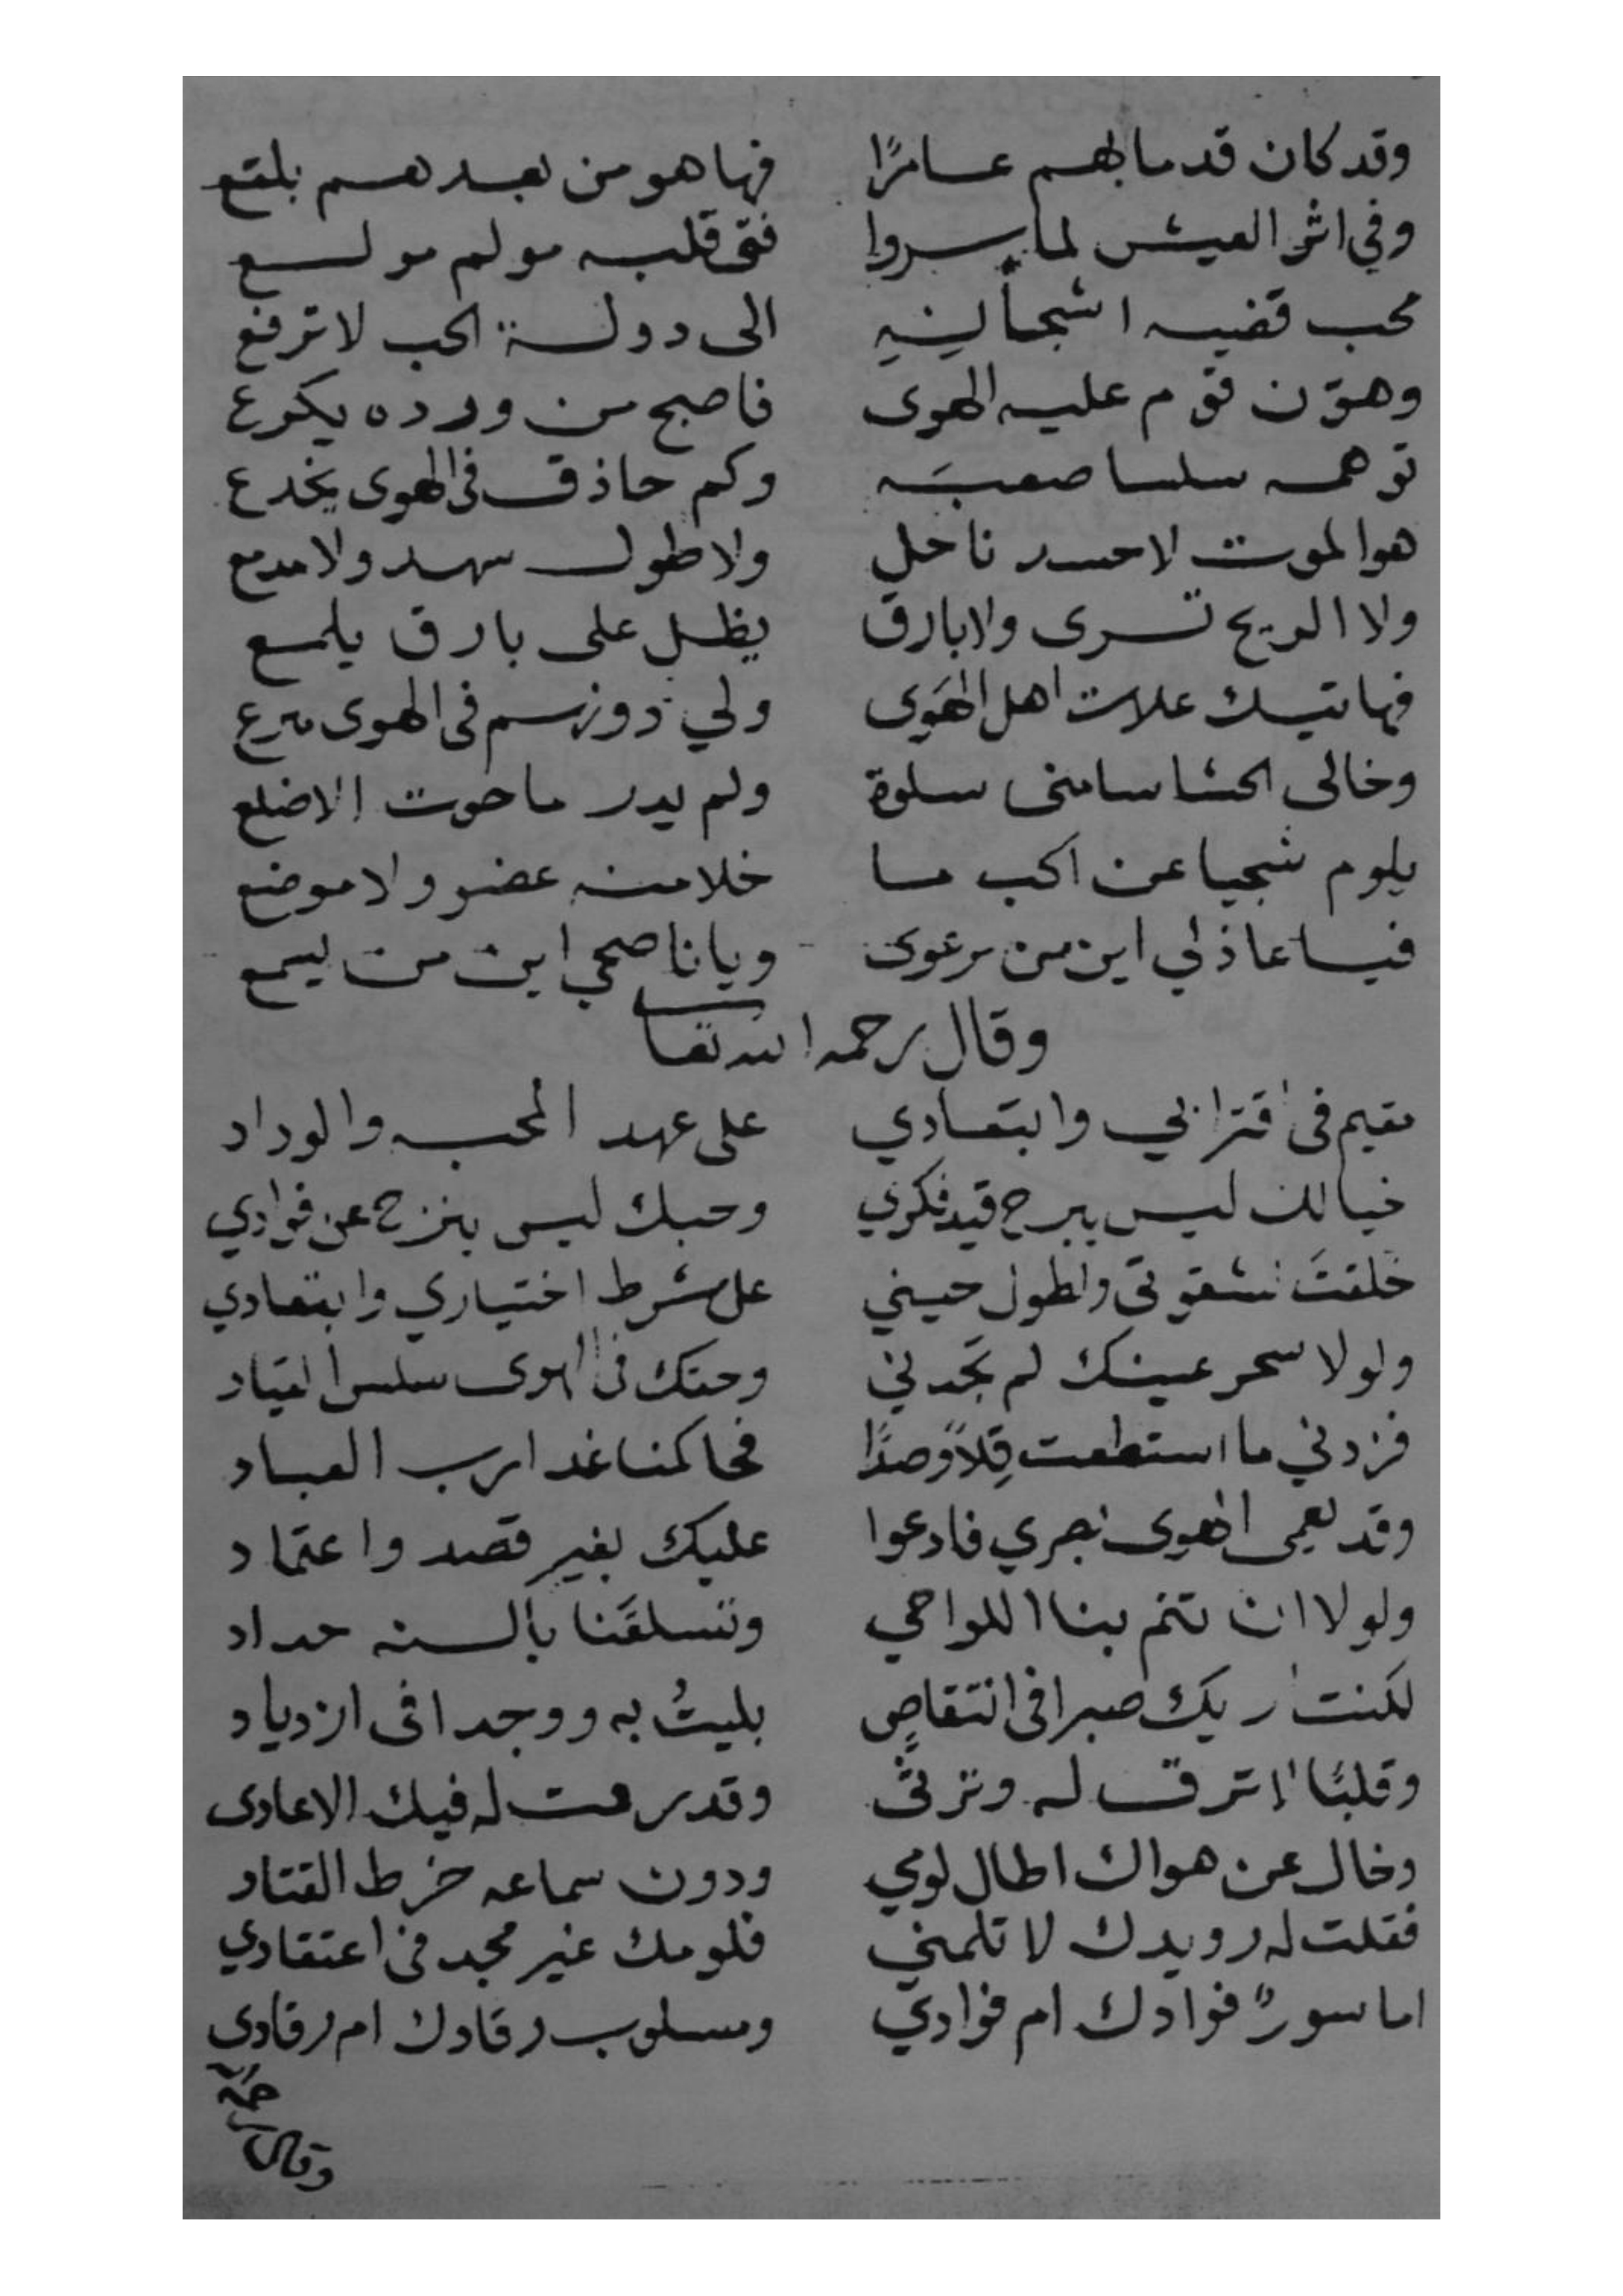 وقد كان قدما بهم عامرًا فها هو من بعدهم بلقع
وفي اثر العيش لما سروا فتى قلبه مولم مولع
محب قضيه اشجانه الى دولة الحب لا ترفع
وهوّن قوم عليه الهوى فاصبح من ورده يكرع
توهمه سلسا صعبَه وكم حاذق في الهوى يخدع
هو الموت لا حسد ناحل ولا طول سهد ولا مدمع
ولا الريح تسرى ولا بارق يظل على بارق يلمع
فهاتيك علات اهل الهَوى ولي دونهم في الهوى مترع
وخالى الحشا سامنى سلوة ولم يدر ما حوت الاضلع
يلوم شجيا عن الحب ما خلا منه عضو ولا موضع
فيا عاذلي اين من يرعوى ويا ناصحي اين من يسمع
وقال رحمه الله تعا
مقيم في اقترابي وابتعادي على عهد المحبه والوداد
خيالك ليس يبرح قيد فكري وحبك ليس ينزح عن فوادي
خلقتَ لشقوتى ولطول حيني على شرط اختياري وابتعادي
ولولا سحر عينك لم تجدني وحقك في الهوى سلس القياد
فزدني ما استطعت قِلاً وصدًا فحاكمنا غدا رب العباد
وقد يعمى الهوى بصري فادعوا عليك بغير قصد واعتماد
ولولا ان تنم بنا اللواحي وتسلقَنا بالسنه حداد
لكنت اريك صبرا في انتقاصٍ بليتُ به ووجدا في ازدياد
وقلبًا لا ترق له وترثى وقد رقت له فيك الاعادى
وخال عن هواك اطال لومي ودون سماعه خرط القتاد
فقلت له رويدك لا تلمني فلومك غير مجد في اعتقادي
اماسورٌ فوادك ام فوادي ومسلوب رقادك ام رقادى
وقال